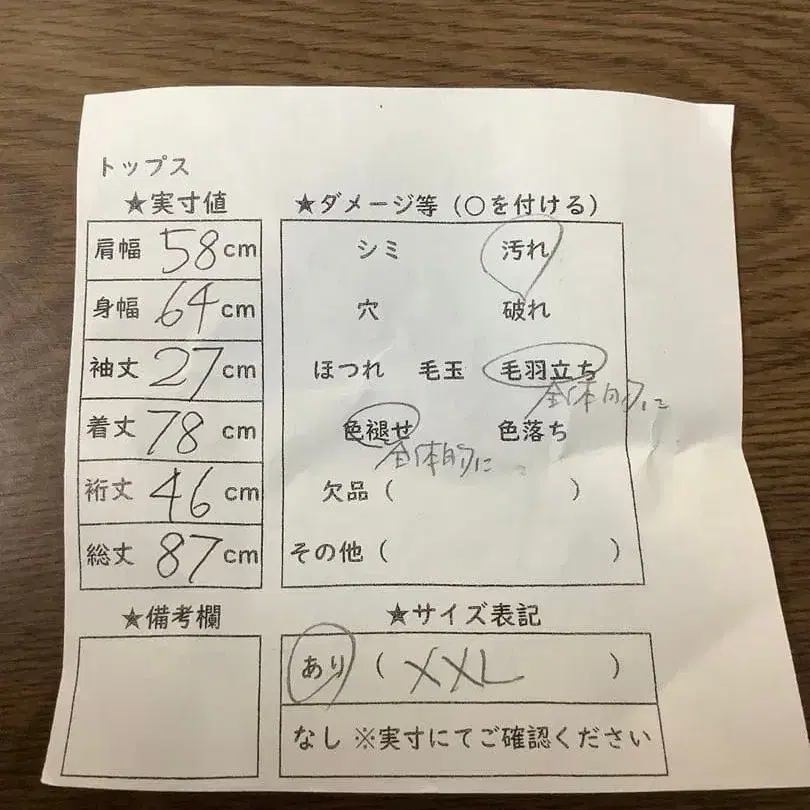 トップス
★実寸値
肩幅 58 cm
身幅 64 cm
袖丈 27 cm
着丈 78 cm
裄丈 46 cm
総丈 87 cm
★ダメージ等（○を付ける）
シミ 汚れ
穴 破れ
ほつれ 毛玉 毛羽立ち
全体的に
色褪せ 色落ち
全体的に
欠品（ ）
その他（ ）
★備考欄
★サイズ表記
あり（ XXL ）
なし ※実寸にてご確認ください